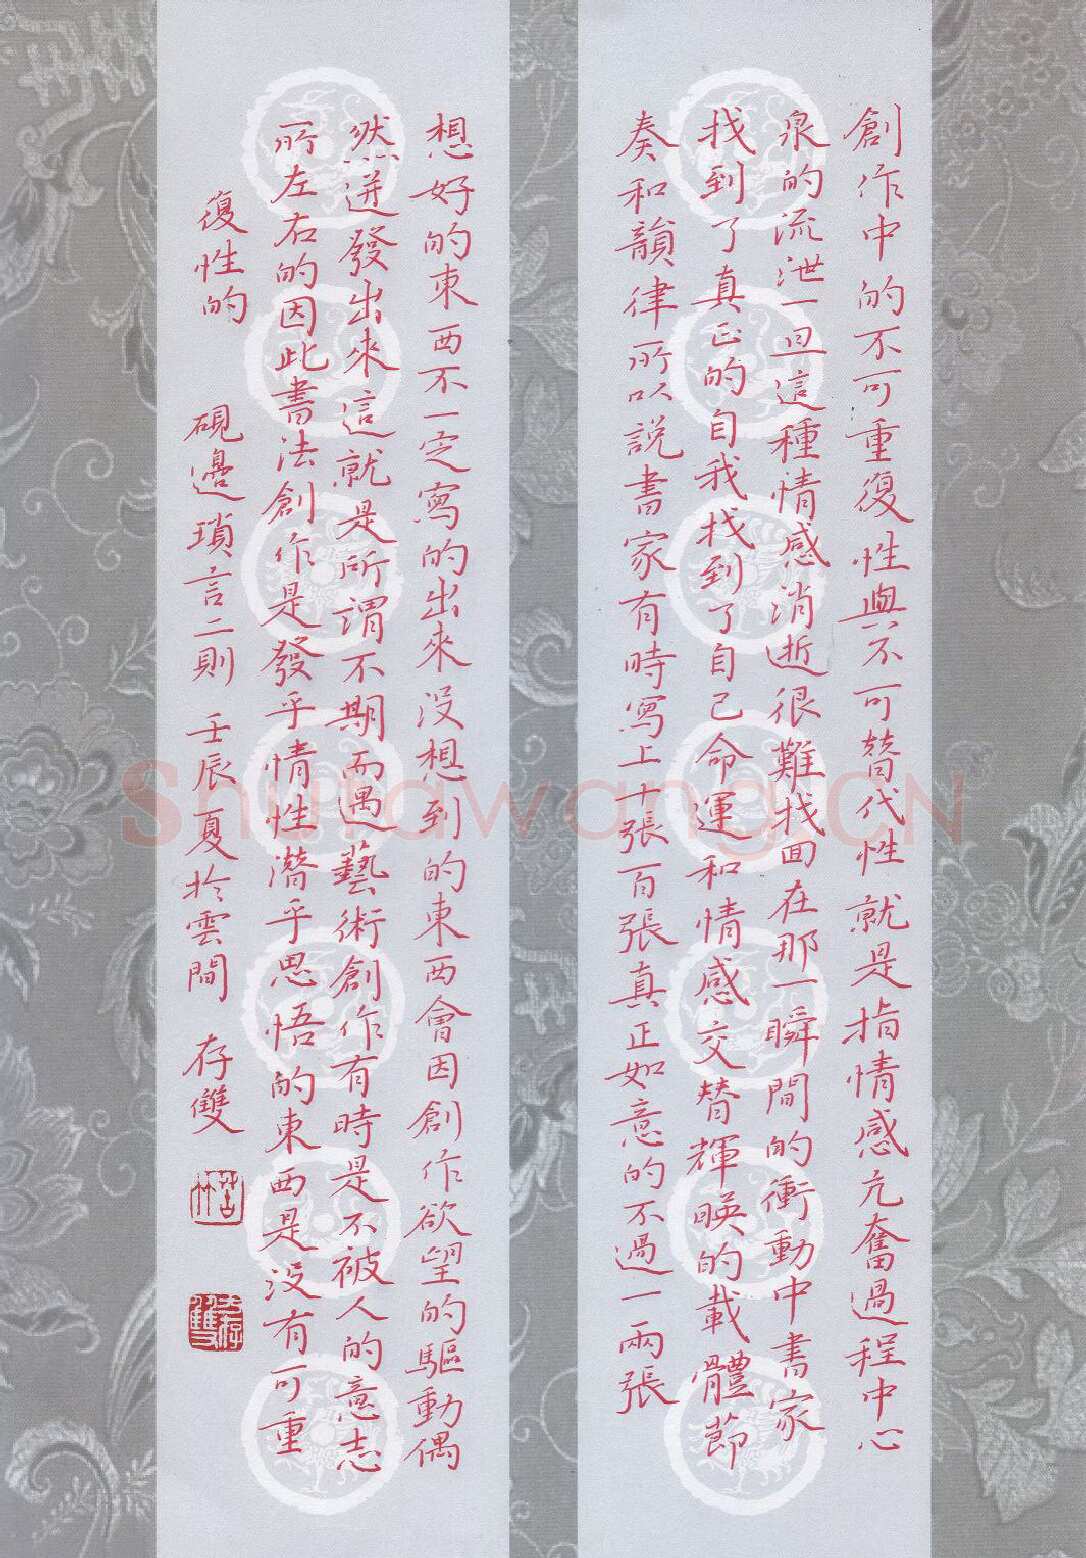 創作中的不可重復性與不可替代性就是指情感亢奮過程中心
泉的流泄一旦這種情感消逝很難找回在那一瞬間的衝動中書家
找到了真正的自我找到了自己命運和情感交替輝映的載體節
奏和韻律所以說書家有時寫上十張百張真正如意的不過一兩張
想好的東西不一定寫的出來沒想到的東西會因創作欲望的驅動偶
然迸發出來這就是所謂不期而遇藝術創作有時是不被人的意志
所左右的因此書法創作是發乎情性潛乎思悟的東西是沒有可重
復性的
硯邊瑣言二則 壬辰夏於雲間 存雙
Shufawang.CN